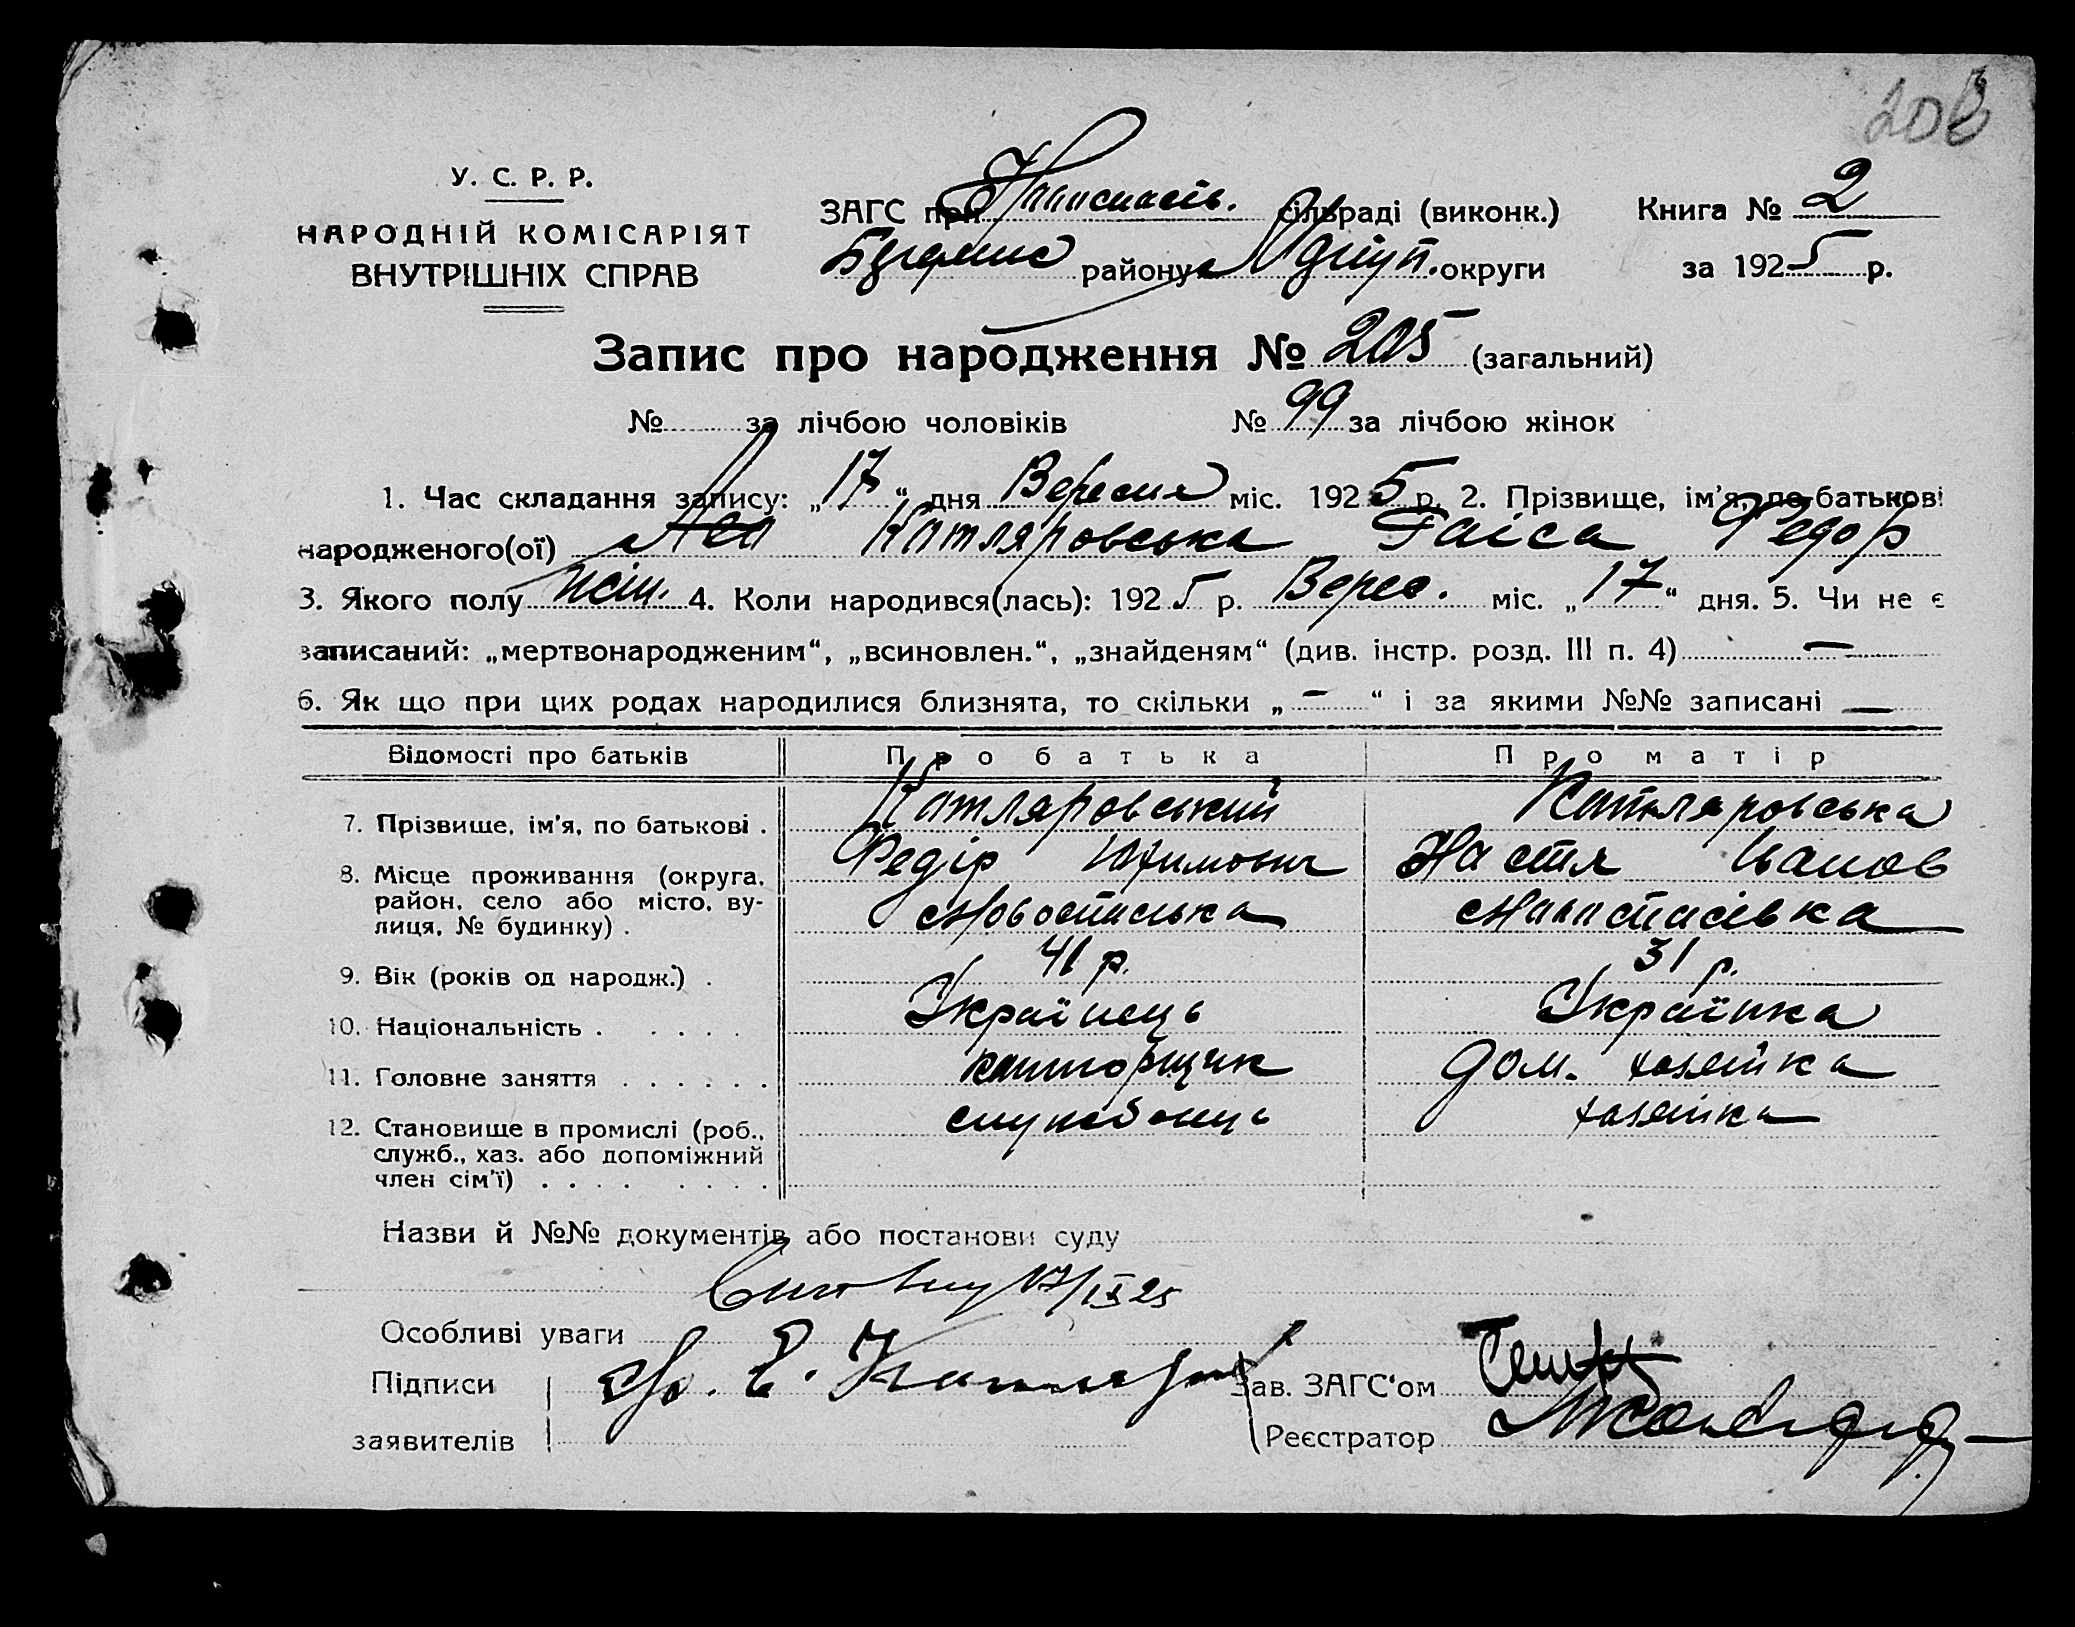 У. С. Р. Р.
НАРОДНІЙ КОМІСАРІЯТ
ВНУТРІШНІХ СПРАВ
ЗАГС при сільраді (виконк.)
району округи
Книга № 2
за 1925 р.
Запис про народження № 205 (загальний)
№ за лічбою чоловіків № 99 за лічбою жінок
1. Час складання запису: „17“ дня Вересня міс. 1925 р. 2. Прізвище, ім'я, по батькові
народженого(ої) Котляровська Раіса Федор
3. Якого полу жін. 4. Коли народився(лась): 1925 р. Верес. міс. „17“ дня. 5. Чи не є
записаний: „мертвонародженим“, „всиновлен.“, „знайденям“ (див. інстр. розд. III п. 4) —
6. Як що при цих родах народилися близнята, то скільки „—“ і за якими №№ записані —
Відомості про батьків Про батька Про матір
7. Прізвище, ім'я, по батькові . Котляровський Котляровська
Федір Юхимович Настя Іванов
8. Місце проживання (округа,
район, село або місто, ву-
лиця, № будинку) .
9. Вік (років од народж.) . 41 р. 31 р.
10. Національність . . . . . Українець Українка
11. Головне заняття . . . . . . конторщик дом. хазяйка
12. Становище в промислі (роб.,
служб., хаз. або допоміжний
член сім'ї) . . . . . . . . службовець хазяйка
Назви й №№ документів або постанови суду
17/IX 25
Особливі уваги
Підписи
заявителів
Зав. ЗАГС'ом
Реєстратор